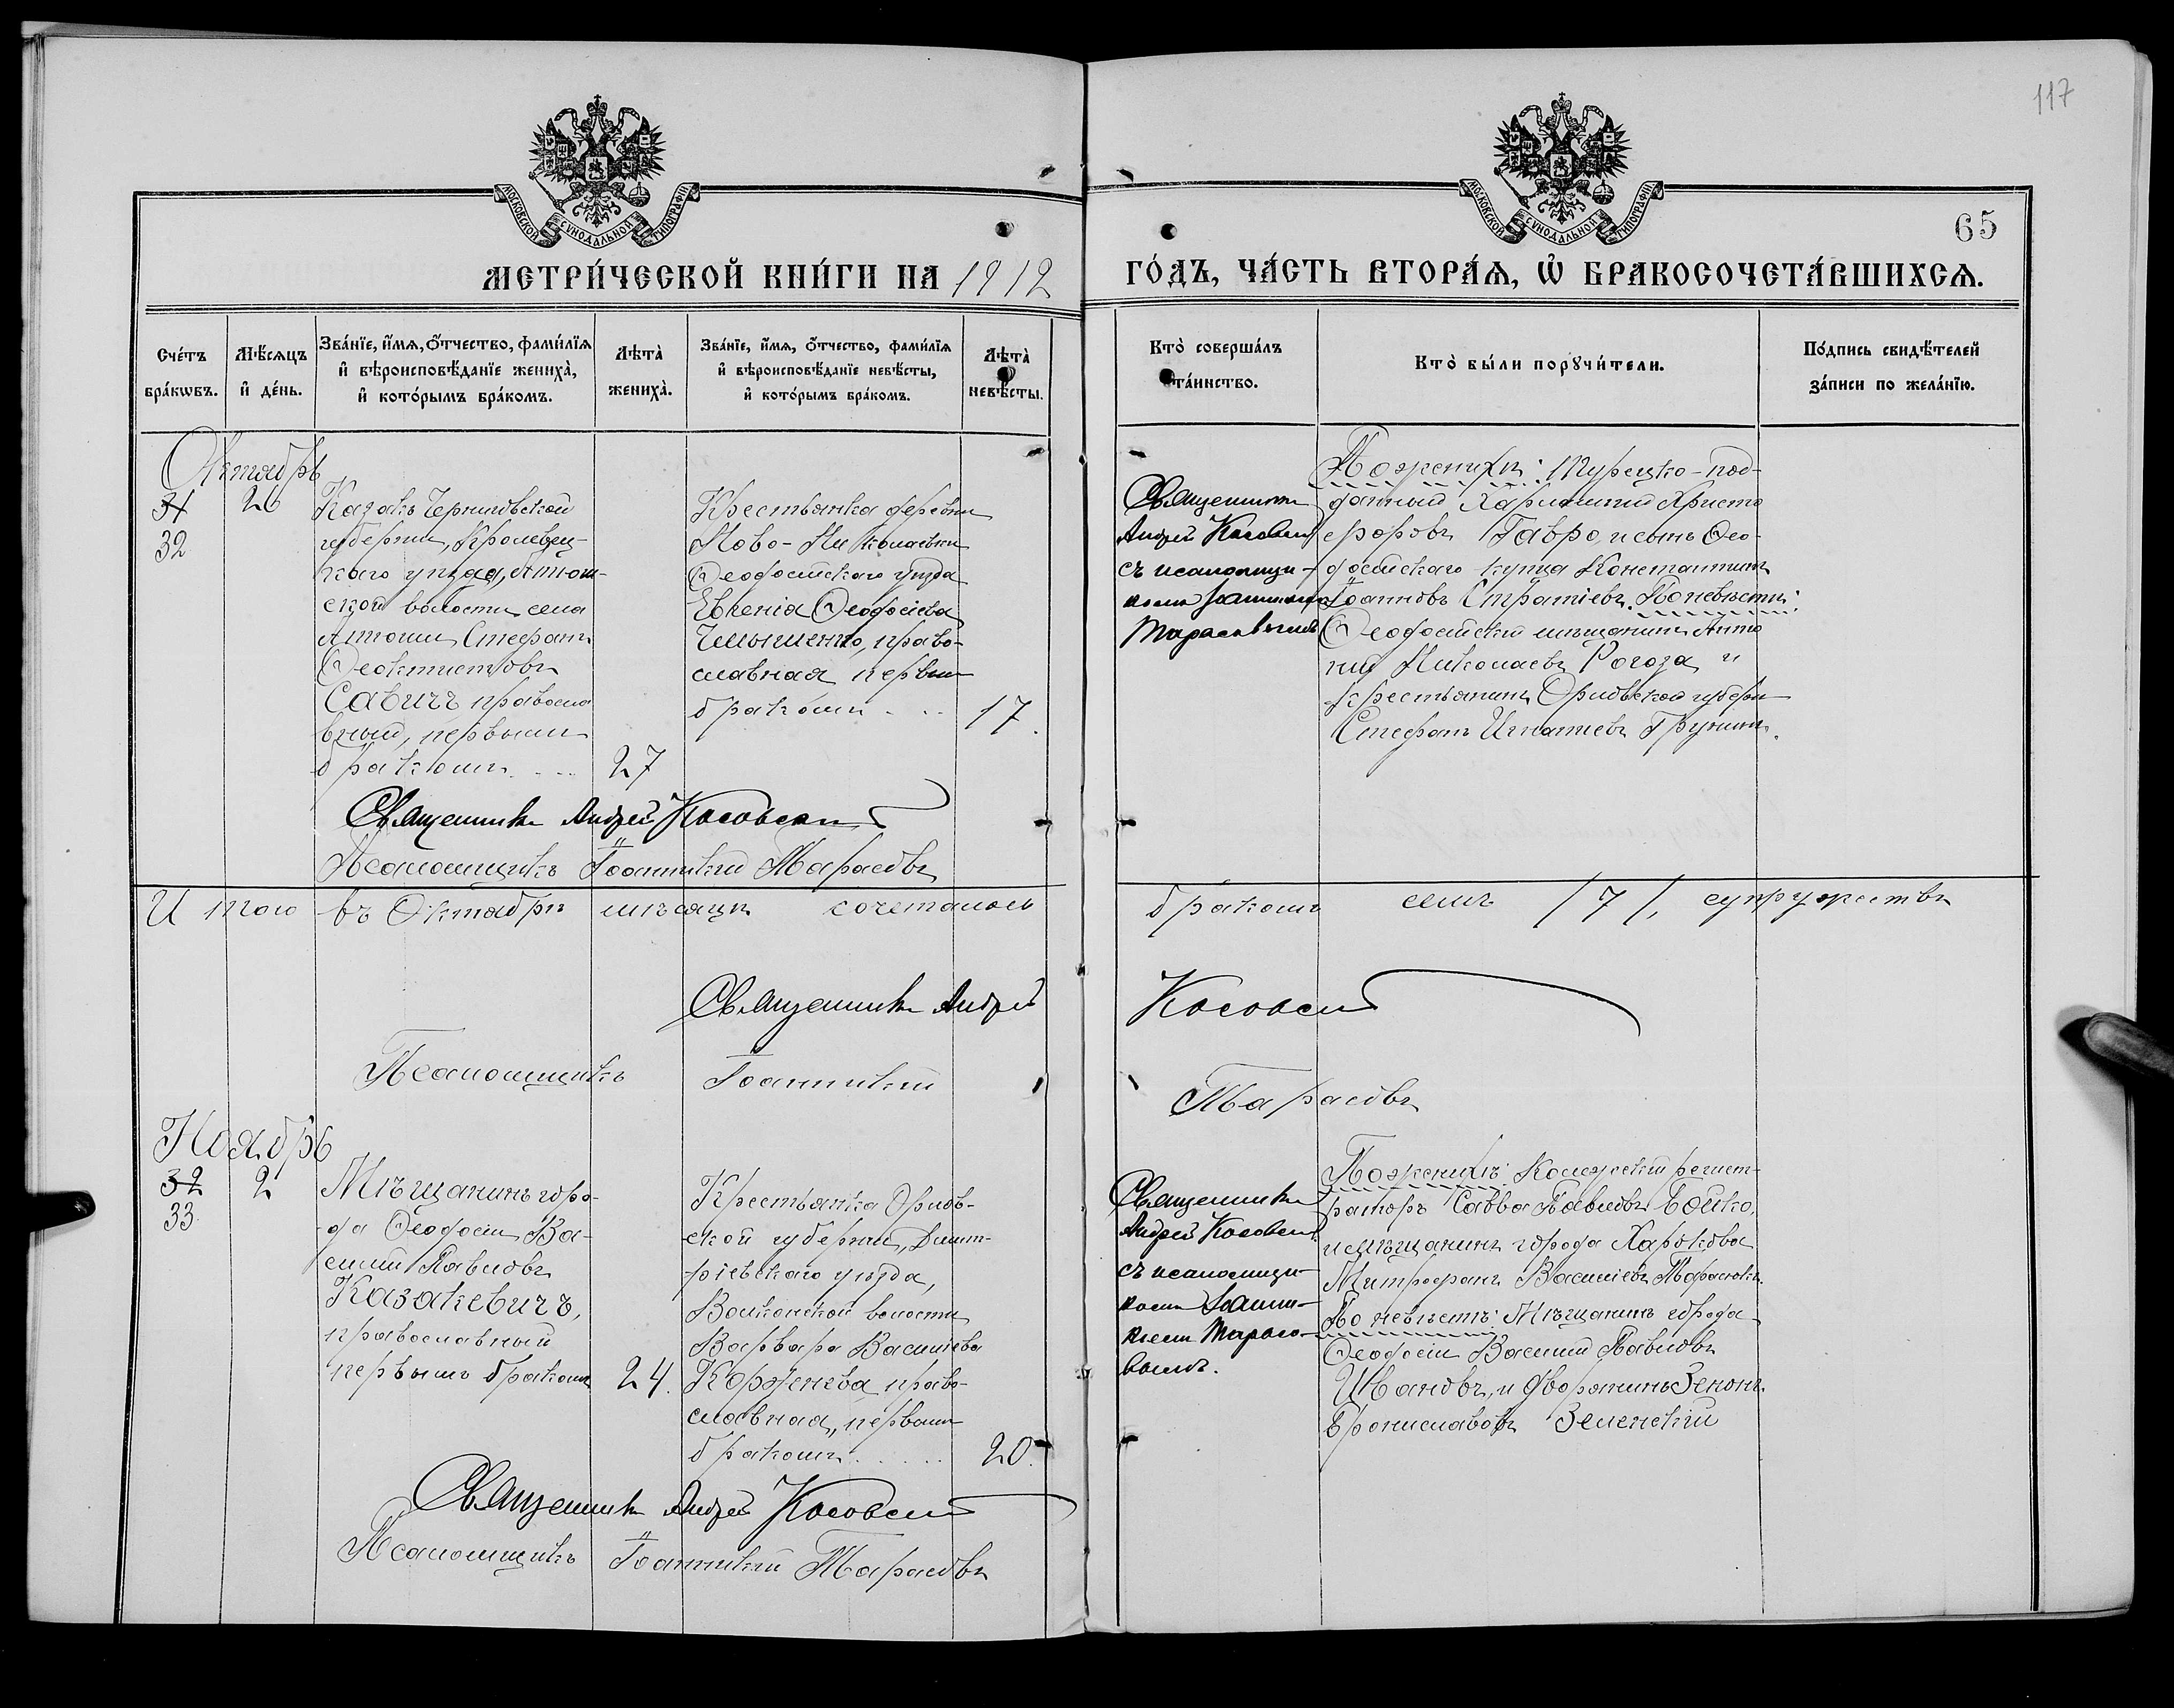 117
65
МОСКОВСКОЙ СУНОДАЛЬНОЙ ТИПОГРАФІИ
МОСКОВСКОЙ СУНОДАЛЬНОЙ ТИПОГРАФІИ
МЕТРИ́ЧЕСКОЙ КНИ́ГИ НА 1912
ГО́ДЪ, ЧА́СТЬ ВТОРА́Ѧ, Ѡ҆ БРАКОСОЧЕТА́ВШИХСѦ.
Сче́тъ
бра́кѡвъ.
Мѣ́сѧцъ
и҆ де́нь.
Зва́нїе, и҆́мѧ, ѻ҆́тчество, фами́лїѧ
и҆ вѣроисповѣ́данїе жениха̀,
и҆ кото́рымъ бра́комъ.
Лѣта̀
жениха̀.
Зва́нїе, и҆́мѧ, ѻ҆́тчество, фами́лїѧ
и҆ вѣроисповѣ́данїе невѣ́сты,
и҆ кото́рымъ бра́комъ.
Лѣта̀
невѣ́сты.
Кто̀ соверша́лъ
та́инство.
Кто̀ бы́ли порꙋчи́тели.
По́дпись свидѣ́телей
за́писи по жела́нїю.
Октябрь
31 26
32
Казакъ Черниговской
губерніи, Кролевец-
каго уѣзда, Атюш-
ской волости села
Атюши Стефанъ
Ѳеоктистовъ
Савичъ правосла
вный, первымъ
бракомъ . . . 27
Крестьянка деревни
Ново-Николаевки
Ѳеодосійскаго уѣзда
Евгенія Ѳеодосіева
право-
славная первымъ
бракомъ . . . 17.
Священникъ
Андрей Косовскій
съ псаломщи-
комъ Іоанникіемъ
Тарасовымъ
По женихѣ: Турецко-под-
данный Харлампій Христо
форовъ Гавро, и сынъ Ѳео-
досійскаго купца Константинъ
Іоанновъ Стратіевъ. По невѣстѣ:
Ѳеодосійскій мѣщанинъ Анто
ній Николаевъ Рогоза и
крестьянинъ Орловской губерн
Стефанъ Игнатіевъ Грунинъ.
Священникъ Андрей Косовскій
Псаломщикъ Іоанникій Тарасовъ
Итого въ Октябрѣ мѣсяцѣ сочеталось
бракомъ семь /7/. супружествъ
Священникъ Андрей Косовскій
Псаломщикъ Іоанникій Тарасовъ
Ноябрь
32 2
33
Мѣщанинъ горо-
да Ѳеодосіи Ва-
силій Павловъ
Казакевичъ,
православный
первымъ бракомъ 24.
Крестьянка Орлов-
ской губерніи, Дмит-
ріевскаго уѣзда,
Волконской волости
Варвара Васильева
Коренева право-
славная, первымъ
бракомъ . . . . . 20.
Священникъ
Андрей Косовскій
съ псаломщи-
комъ Іоанни-
кіемъ Тарасо-
вымъ.
По женихѣ: Коллежскій регист-
раторъ Савва Павловъ Бойко,
и мѣщанинъ города Харькова
Митрофанъ Василіевъ
По невѣстѣ: Мѣщанинъ города
Ѳеодосіи Василій Павловъ
Ивановъ, и дворянинъ Зенонъ
Брониславовъ Зеленскій
Священникъ Андрей Косовскій
Псаломщикъ Іоанникій Тарасовъ